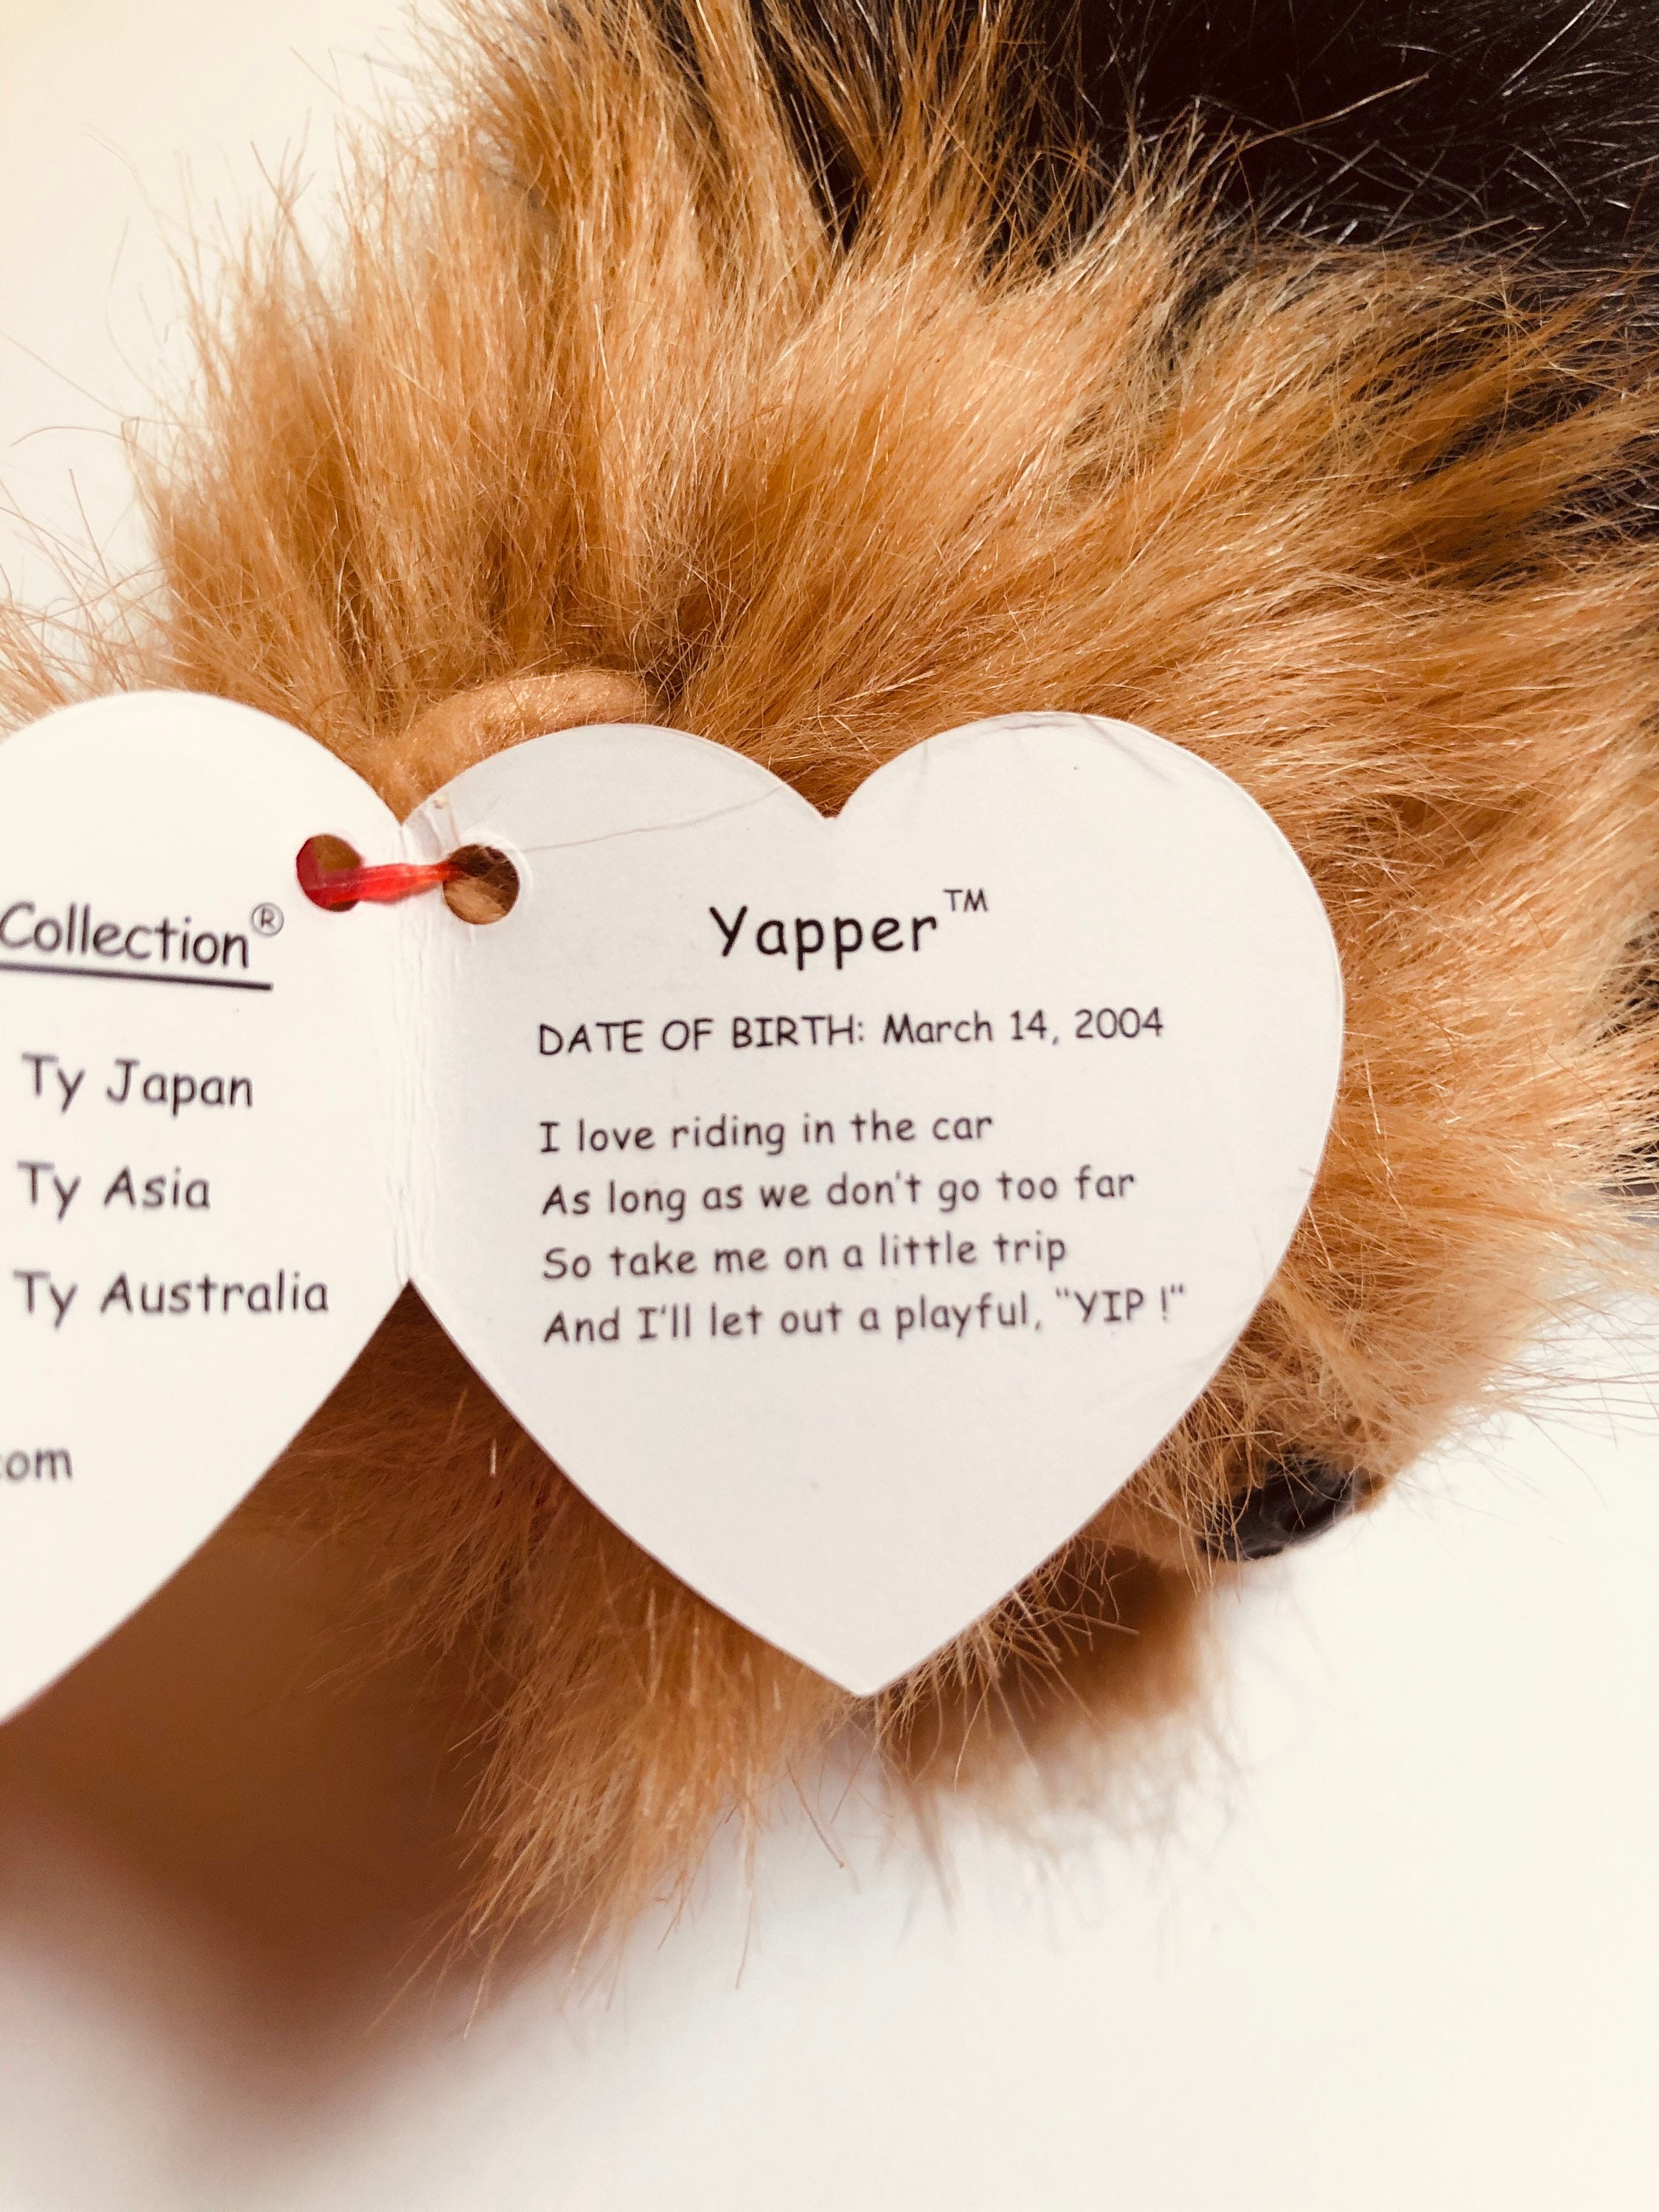 Collection®
Ty Japan
Ty Asia
Ty Australia
com
Yapper™
DATE OF BIRTH: March 14, 2004
I love riding in the car
As long as we don't go too far
So take me on a little trip
And I'll let out a playful, "YIP !"